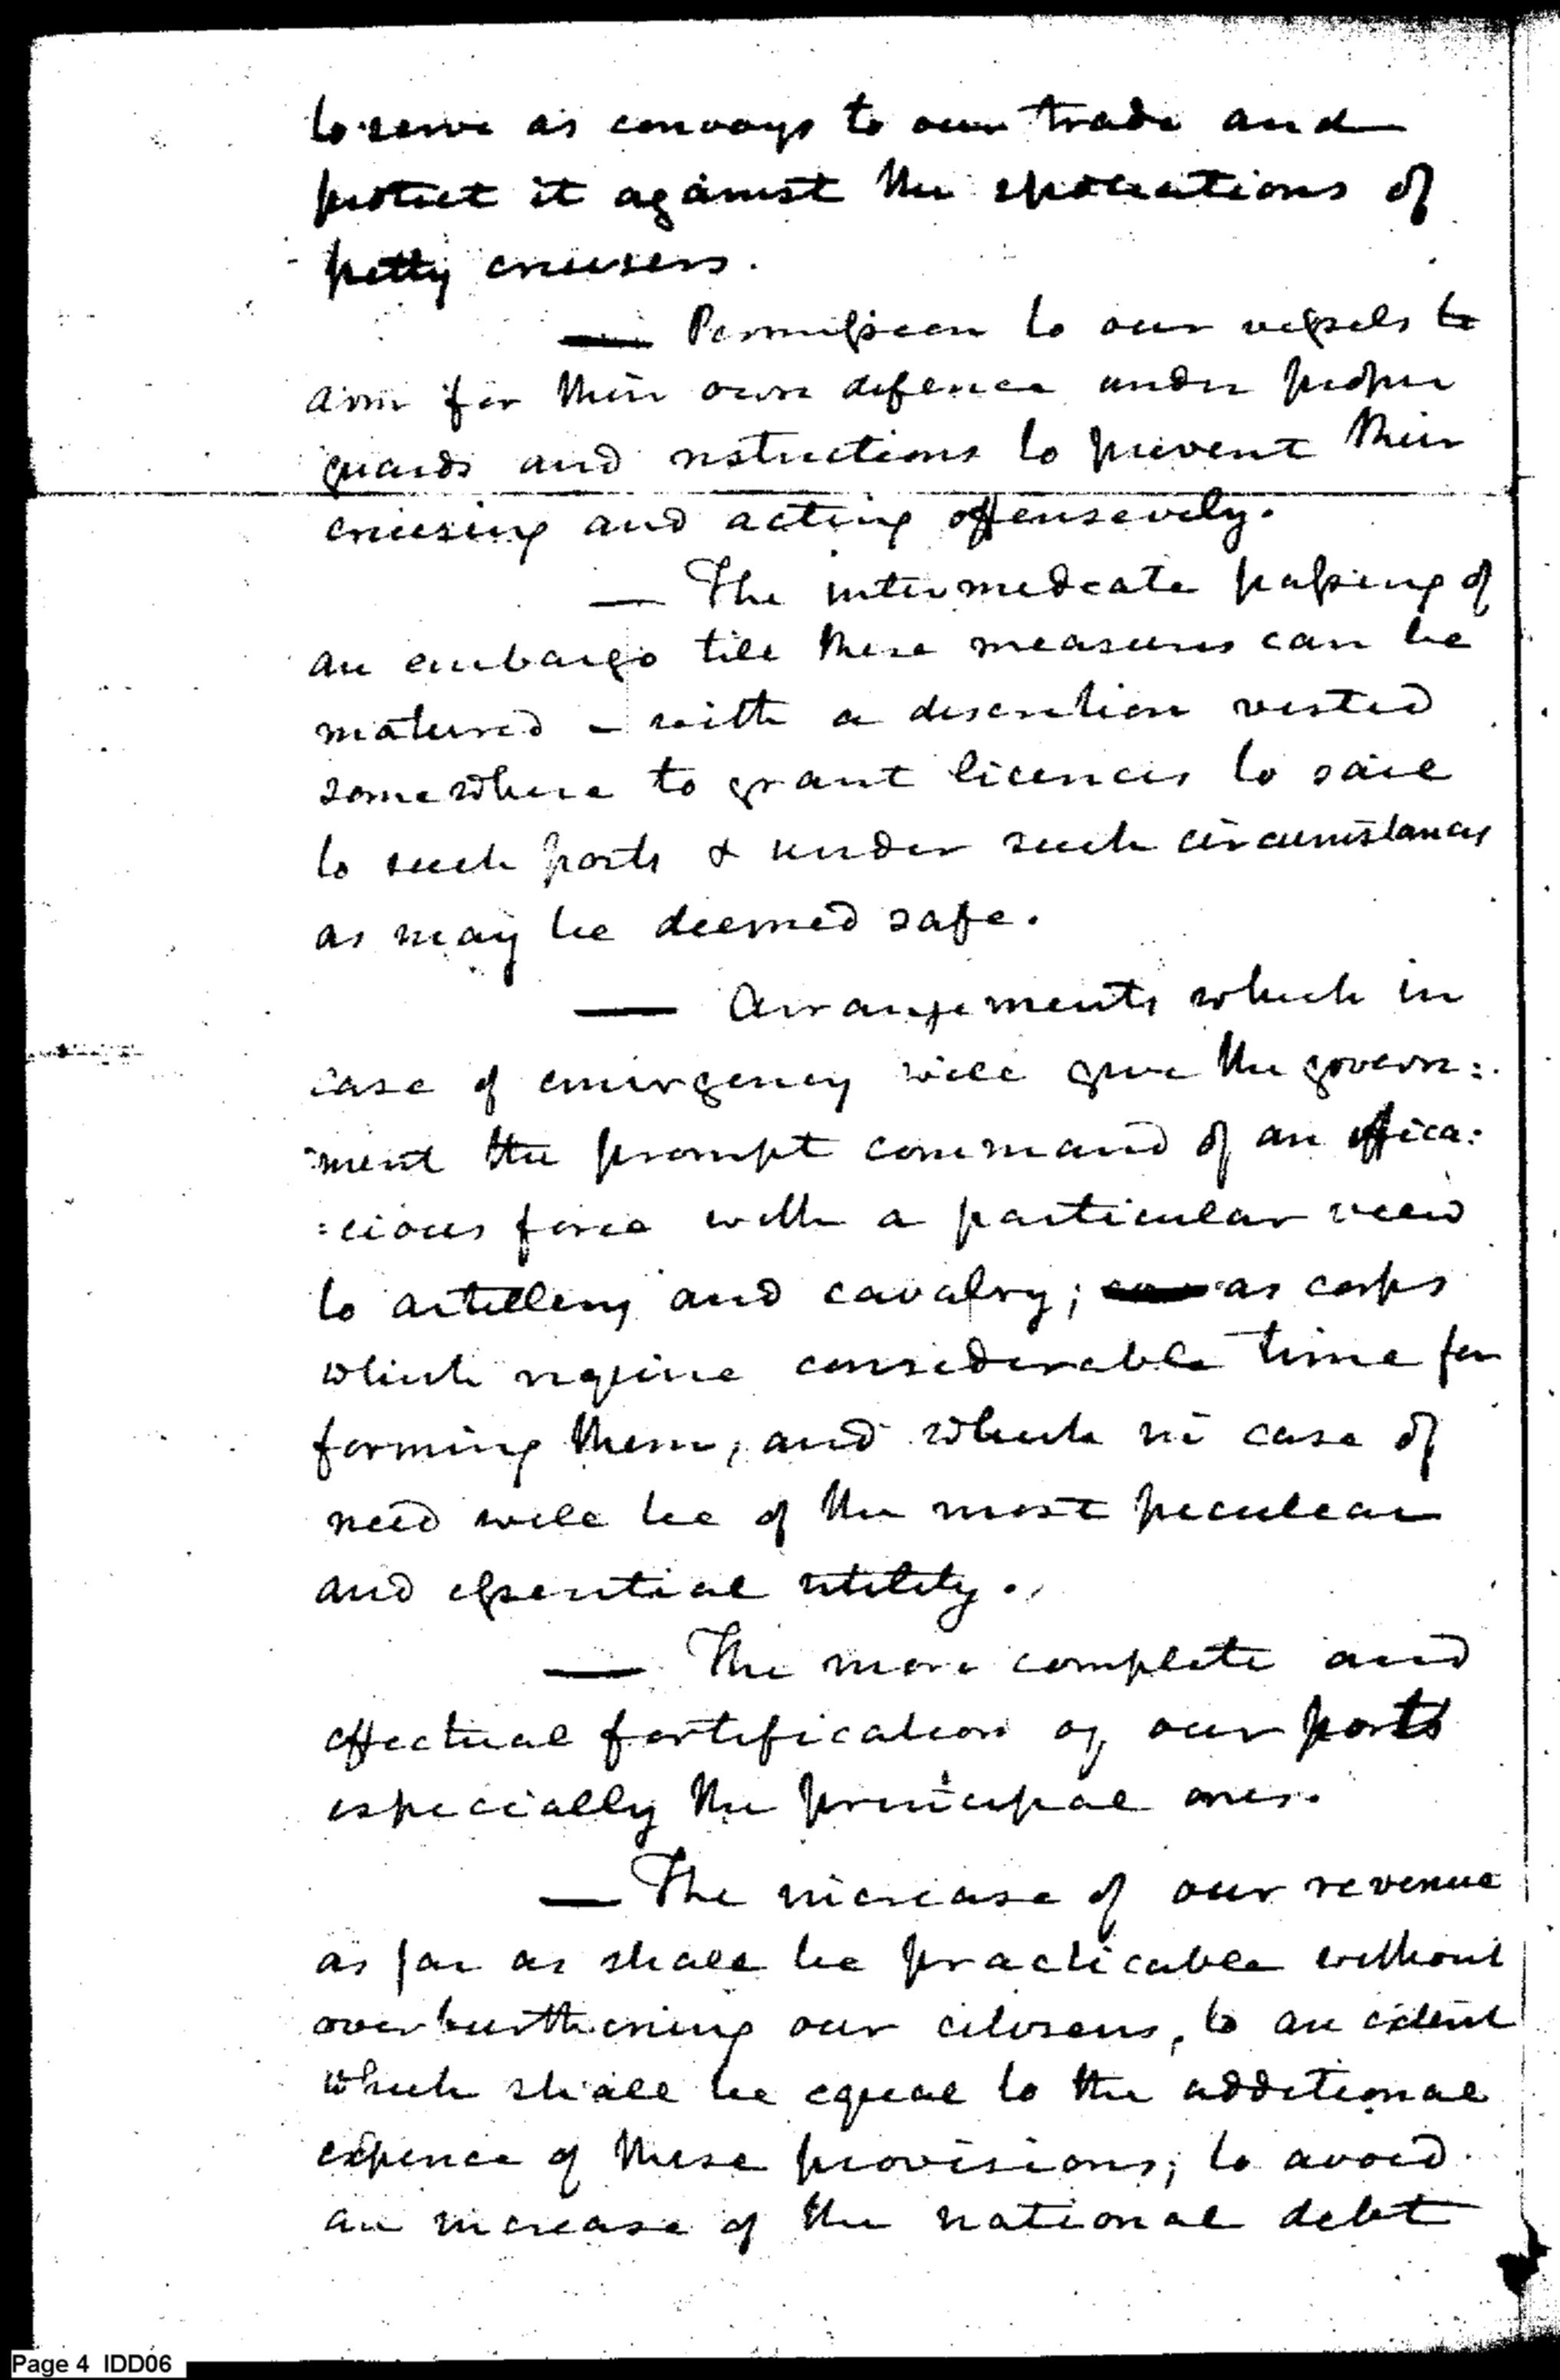 to serve as convoys to our trade and
protect it against the spoliations of
petty cruisers.
— Permission to our vessels to
arm for their own defence under proper
guards and restrictions to prevent their
cruising and acting offensively.
— The intermediate passing of
an embargo till these measures can be
matured – with a discretion vested
somewhere to grant licences to sail
to such ports & under such circumstances
as may be deemed safe.
— Arrangements which in
case of emergency will give the govern:
ment the prompt command of an effica:
:cious force with a particular view
to artillery and cavalry; as corps
which require considerable time for
forming them, and which in case of
need will be of the most peculiar
and essential utility.
— The more complete and
effectual fortification of our ports
especially the principal ones.
— The increase of our revenue
as far as shall be practicable without
overburthening our citizens, to an extent
which shall be equal to the additional
expence of these provisions; to avoid
an increase of the national debt
Page 4 IDD06